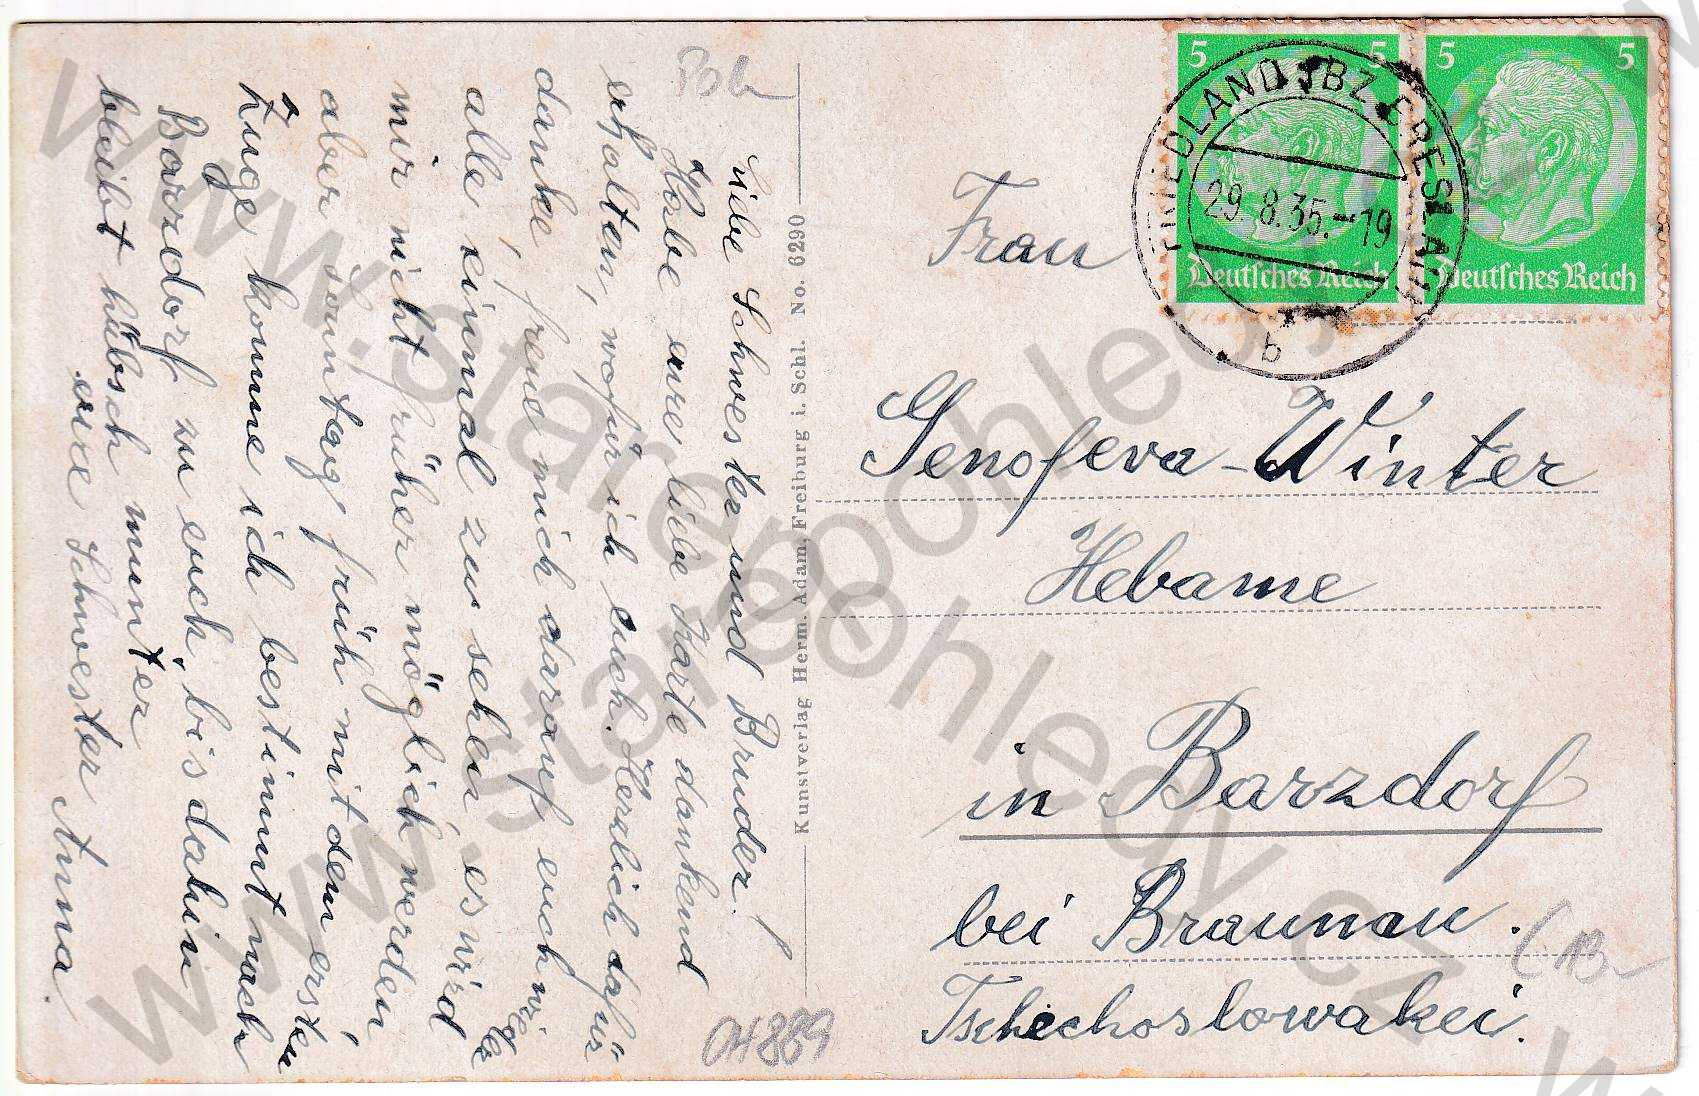 Liebe Schwester und Bruder!
Habe eure liebe Karte dankend
erhalten, wofür ich euch. Herzlich dafür
danke, freue mich darauf euch wieder
alle einmal zu sehen, es wird
mir nicht früher möglich werden
aber Sonntag früh mit dem ersten
Zuge komme ich bestimmt nach
Barzdorf zu euch, bis dahin
bleibt hübsch munter
eure Schwester Anna.
Kunstverlag Herm. Adam, Freiburg i. Schl. No. 6290
5 5
Deutsches Reich
5 5
Deutsches Reich
FRIEDLAND (BZ BRESLAU)
29.8.35.-19
b
Frau
Genofeva-Winter
Hebame
in Barzdorf
bei Braunau.
Tschechoslowakei.
www.starepohledy.cz
www.starepohledy.cz